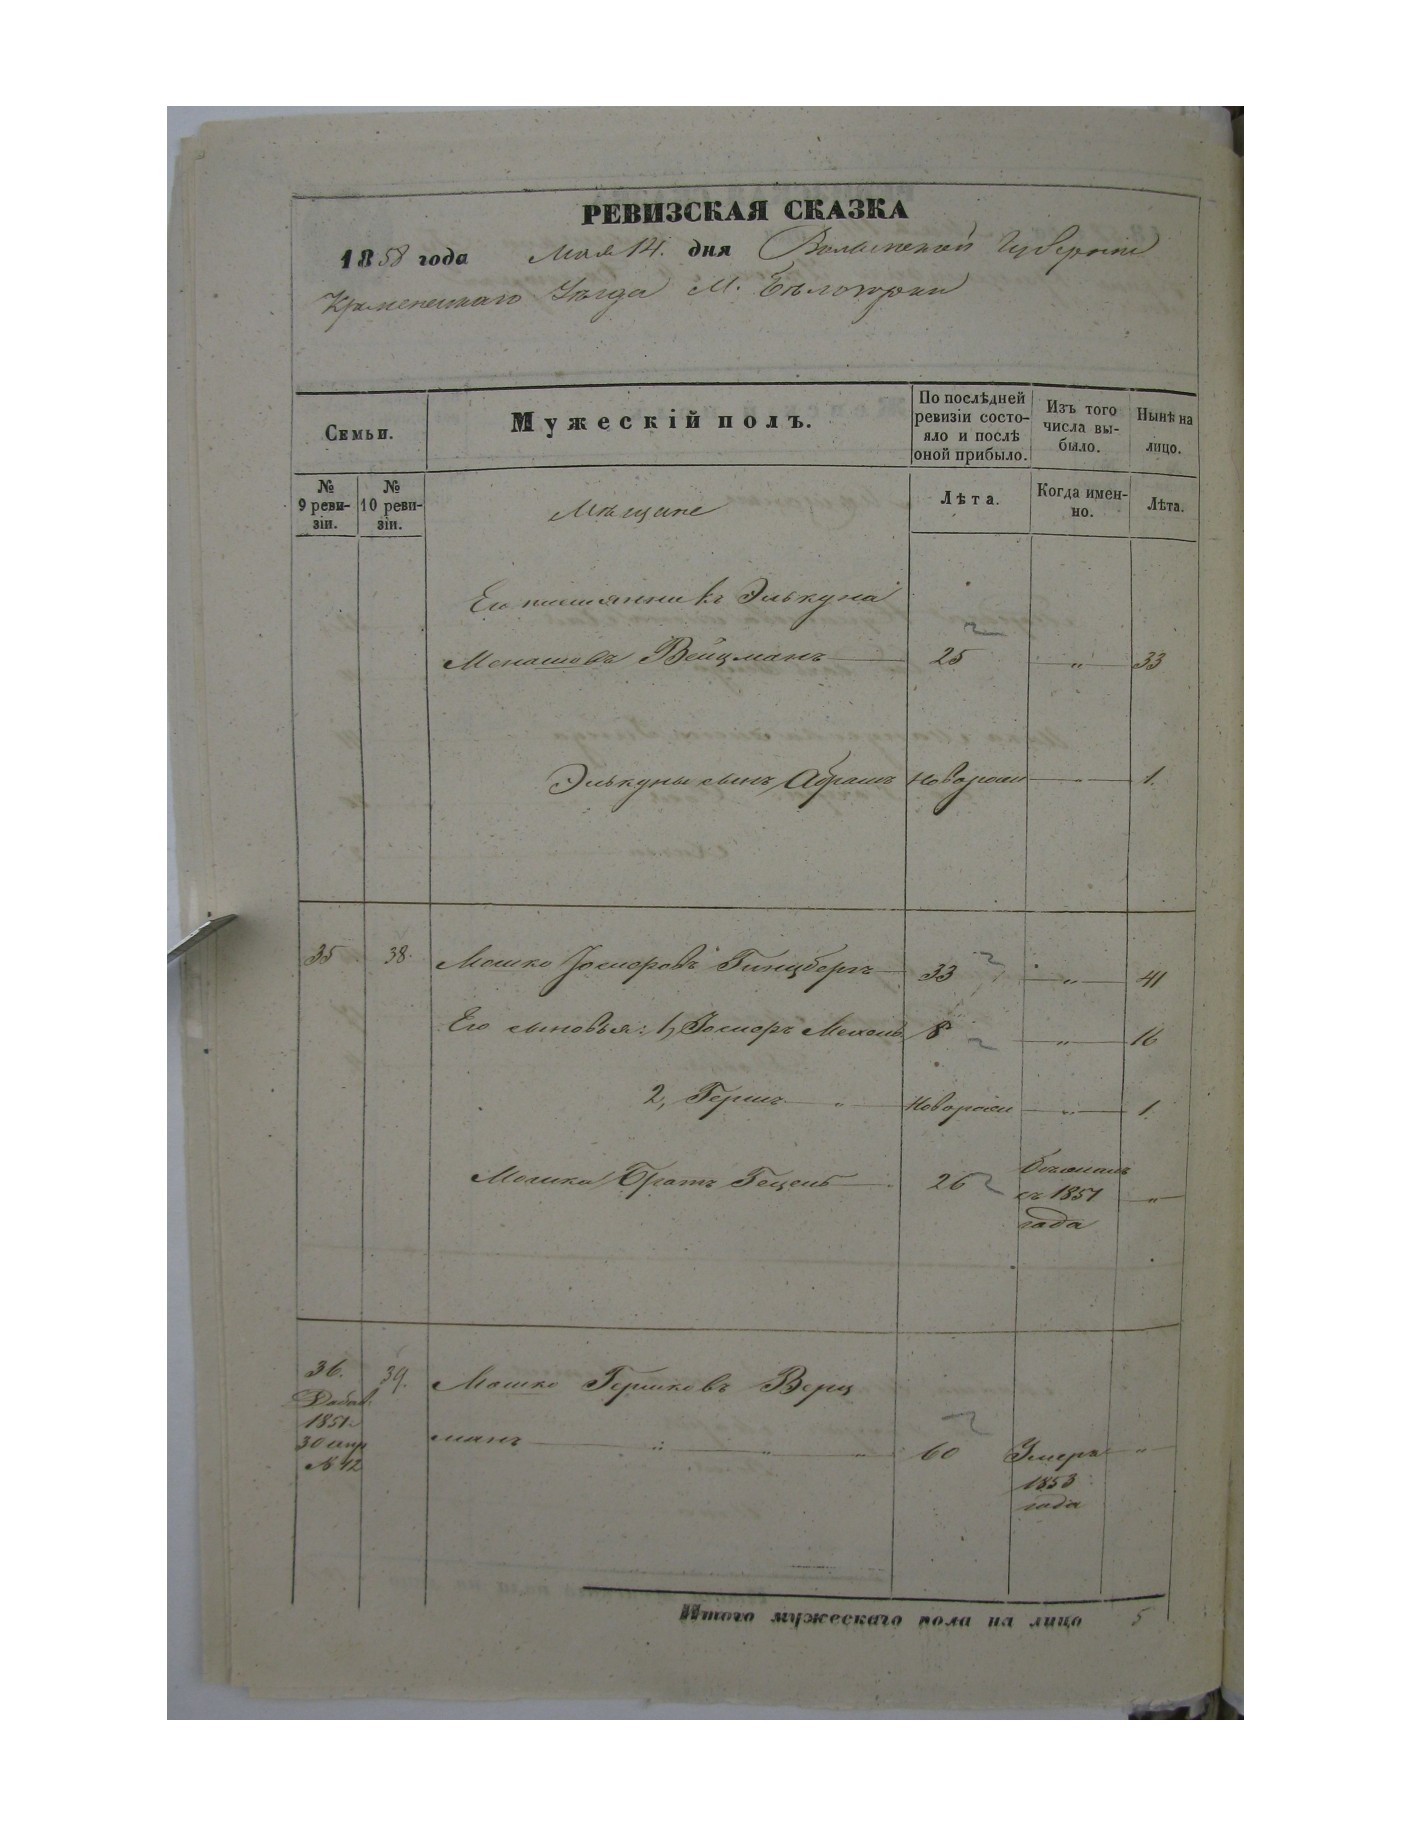 РЕВИЗСКАЯ СКАЗКА
1858 года Мая 14. дня Волынской Губернiи
Кременецкаго Уѣзда М. Бѣлозорки
Семьи.
Мужескiй полъ.
По послѣдней ревизiи состо-
яло и послѣ
оной прибыло.
Изъ того
числа вы-
было.
Нынѣ на
лицо.
№
9 реви-
зiи.
№
10 реви-
зiи.
Мѣщане
Лѣта.
Когда имен-
но.
Лѣта.
Его племянникъ Элькуна
Менашовъ Вейцманъ 25 „ 33
Элькуны сынъ Абрамъ Новорож „ 1.
35 38. Мошко Іосиоровъ Гинцбергъ 33 „ 41
Его сыновья: 1, Іосиоръ 8 „ 16
2, Гершъ „ Новорож „ 1.
Мошки Братъ Гецель 26 съ 1851 „
года
36. 39. Мошко Гершковъ Верц
Добав.
1851
манъ „ „ „ 60 Умеръ „
30 апр
№ 42
1853
года
Итого мужескаго пола на лицо 5